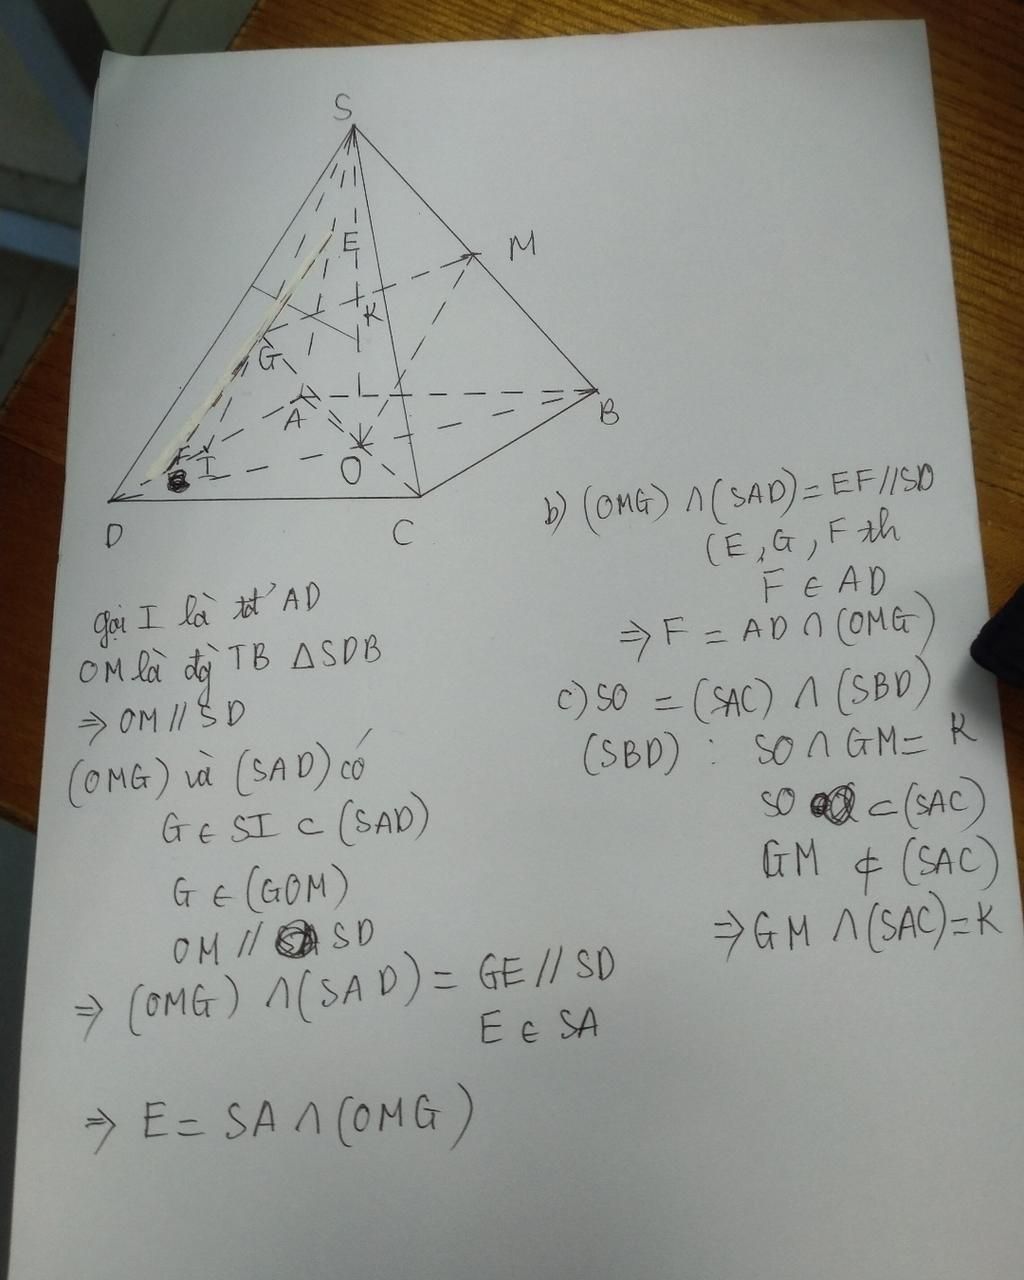 S
E
M
K
G
A
B
F
I
O
D
C
gọi I là tđ AD
OM là đg TB ΔSDB
⇒ OM // SD
(OMG) và (SAD) có
G ∈ SI ⊂ (SAD)
G ∈ (GOM)
OM // SD
⇒ (OMG) ∩ (SAD) = GE // SD
E ∈ SA
⇒ E = SA ∩ (OMG)
b) (OMG) ∩ (SAD) = EF // SD
(E, G, F th
F ∈ AD
⇒ F = AD ∩ (OMG)
c) SO = (SAC) ∩ (SBD)
(SBD) : SO ∩ GM = K
SO ⊂ (SAC)
GM ⊄ (SAC)
⇒ GM ∩ (SAC) = K